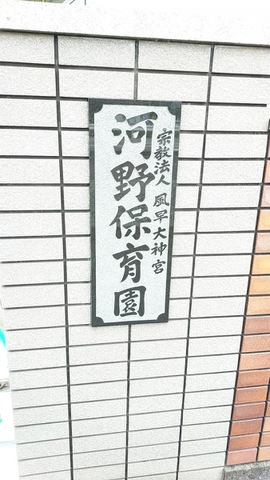 宗教法人 風早大神宮
河野保育園